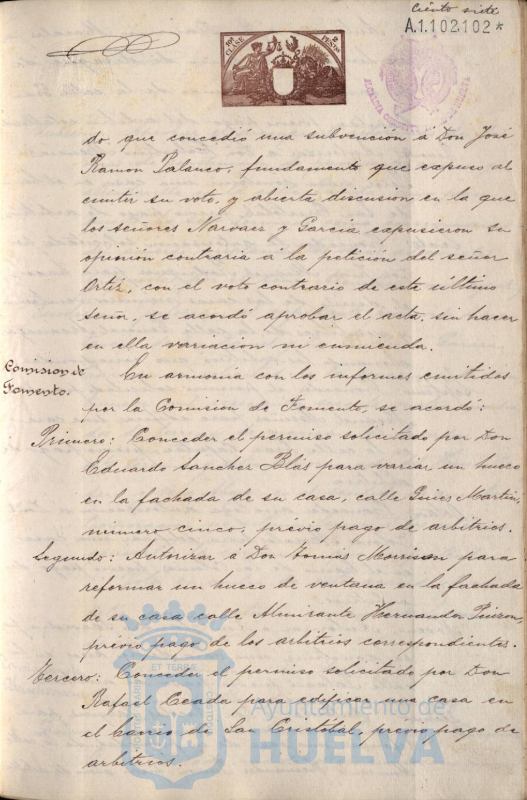 Ciento siete
A.1.102.102*
10ª CLASE
2 PESTAS
do que concedió una subvención á Don José
Ramon Palanco, fundamento que expuso al
emitir su voto, y abierta discusion en la que
los señores Narvaez y Garcia expusieron su
opinión contraria á la petición del señor
Ortiz, con el voto contrario de este último
señor, se acordó aprobar el acta, sin hacer
en ella variacion ni enmienda.
Comision de
Fomento.
En armonía con los informes emitidos
por la Comision de Fomento, se acordó:
Primero: Conceder el permiso solicitado por Don
Eduardo Sanchez Blás para variar un hueco
en la fachada de su casa, calle Martin,
número cinco, prévio pago de arbitrios.
Segundo: Autorizar á Don Tomás Morrison para
reformar un hueco de ventana en la fachada
de su casa calle Almirante Hernandez Pinzon,
prévio pago de los arbitrios correspondientes.
Tercero: Conceder el permiso solicitado por Don
Rafael Ceada para edificar una casa en
el barrio de San Cristóbal, prévio pago de
arbitrios.
ET TERRÆ
Ayuntamiento de
HUELVA